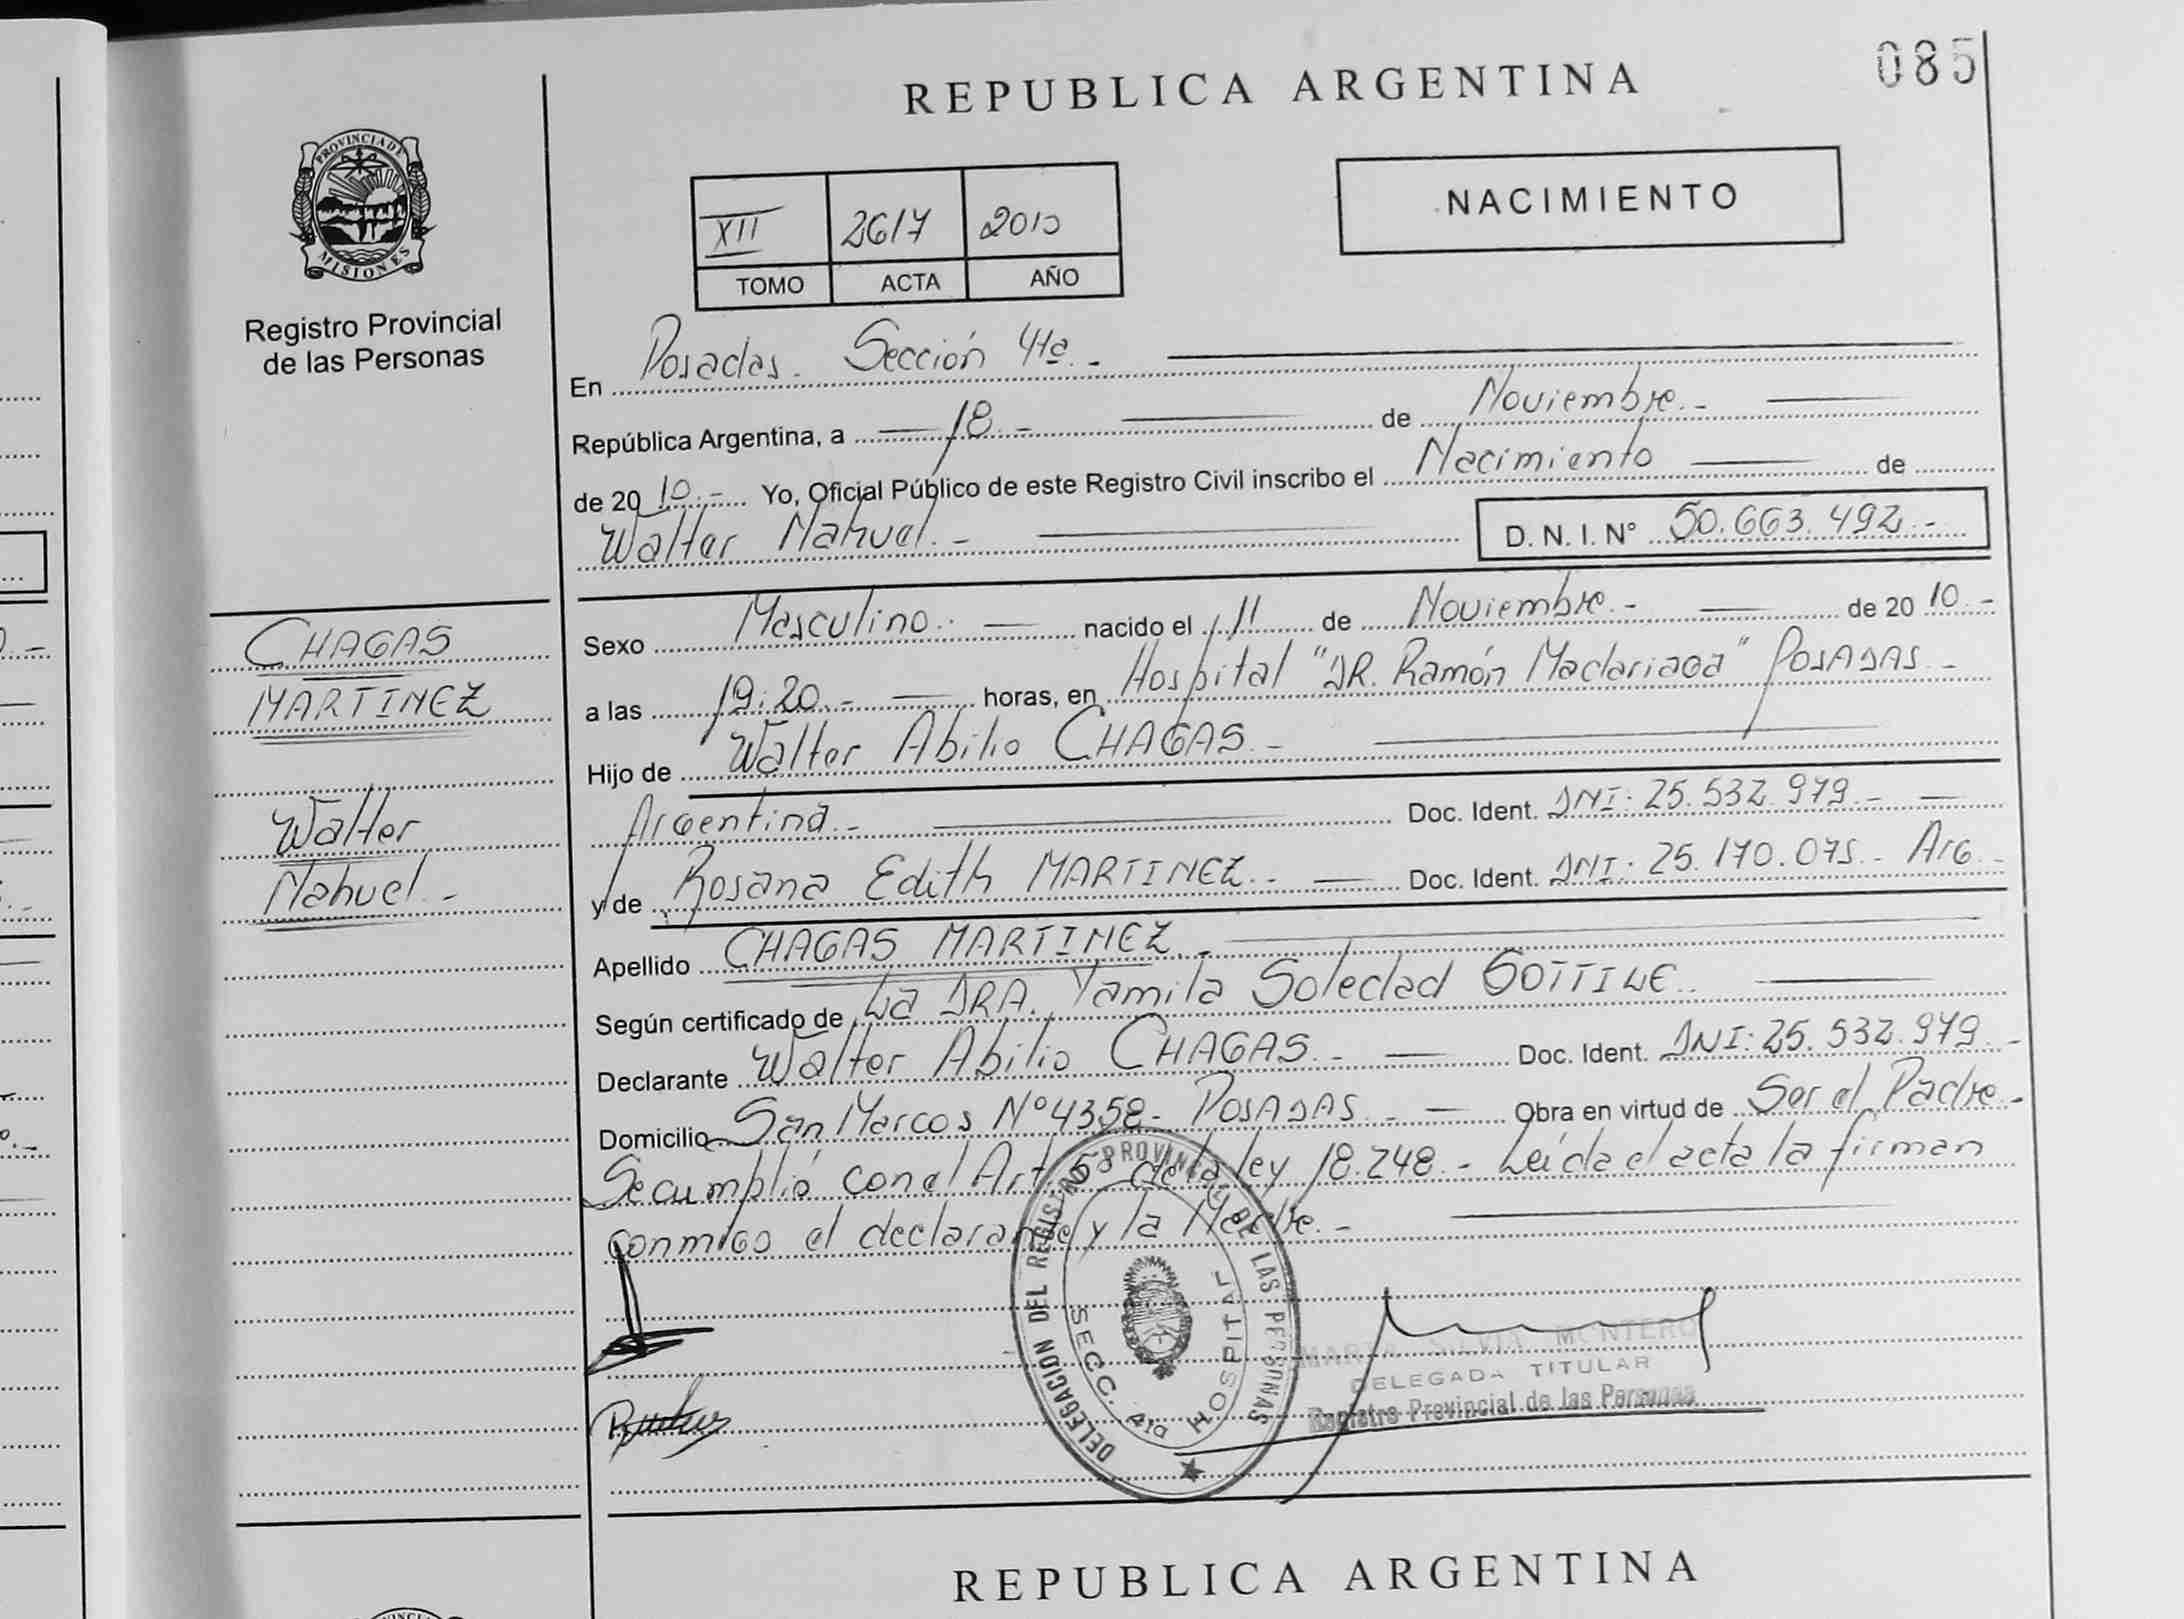 085
REPUBLICA ARGENTINA
PROVINCIA DE
MISIONES
Registro Provincial
de las Personas
NACIMIENTO
XII 2617 2010
TOMO ACTA AÑO
En Posadas. Sección 4ta.-
República Argentina, a 18.- de Noviembre.-
de 2010.- Yo, Oficial Público de este Registro Civil inscribo el Nacimiento de
Walter Nahuel.- D. N. I. Nº 50.663.492.-
CHAGAS
MARTINEZ
Walter
Nahuel.-
Sexo Masculino.- nacido el 11 de Noviembre.- de 2010.-
a las 19:20.- horas, en Hospital "DR. Ramón Madariaga" POSADAS.-
Hijo de Walter Abilio CHAGAS.-
Argentina.- Doc. Ident. DNI: 25.532.979.-
y de Rosana Edith MARTINEZ.- Doc. Ident. DNI: 25.170.075.- Arg.-
Apellido CHAGAS MARTINEZ.-
Según certificado de La DRA. Yamila Soledad SOTTILE.
Declarante Walter Abilio CHAGAS.- Doc. Ident. DNI: 25.532.979.-
Domicilio San Marcos Nº 4358- POSADAS.- Obra en virtud de Ser el Padre.-
Se cumplió con el Art. 5º de la ley 18.248.- Leída el acta la firman
conmigo el declarante y la Madre.-
DELEGACION DEL REGISTRO PROVINCIAL DE LAS PERSONAS
SECC. 4ta HOSPITAL
SILVIA MONTERO
DELEGADA TITULAR
Registro Provincial de las Personas
REPUBLICA ARGENTINA